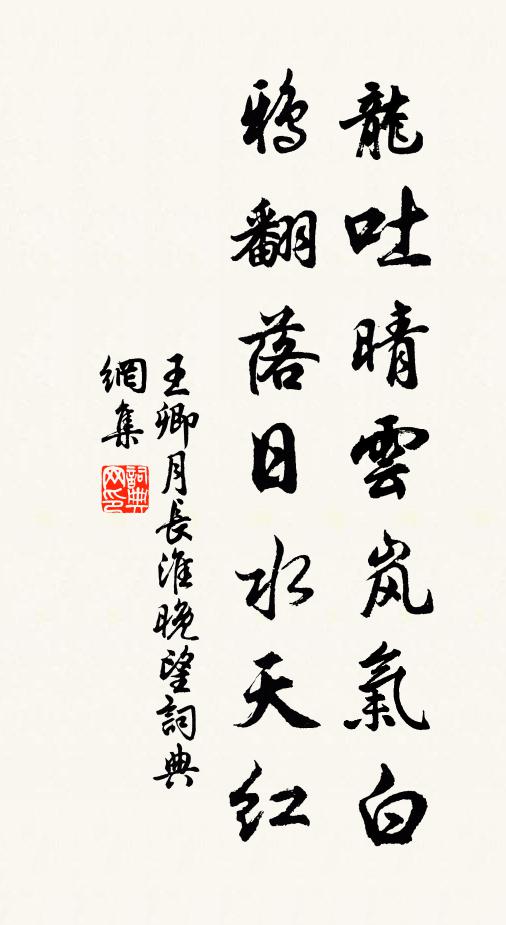 龍吐晴雲岚氣白
鴉翻落日水天紅
王卿月長淮晚望詞典
網集
詞典网印